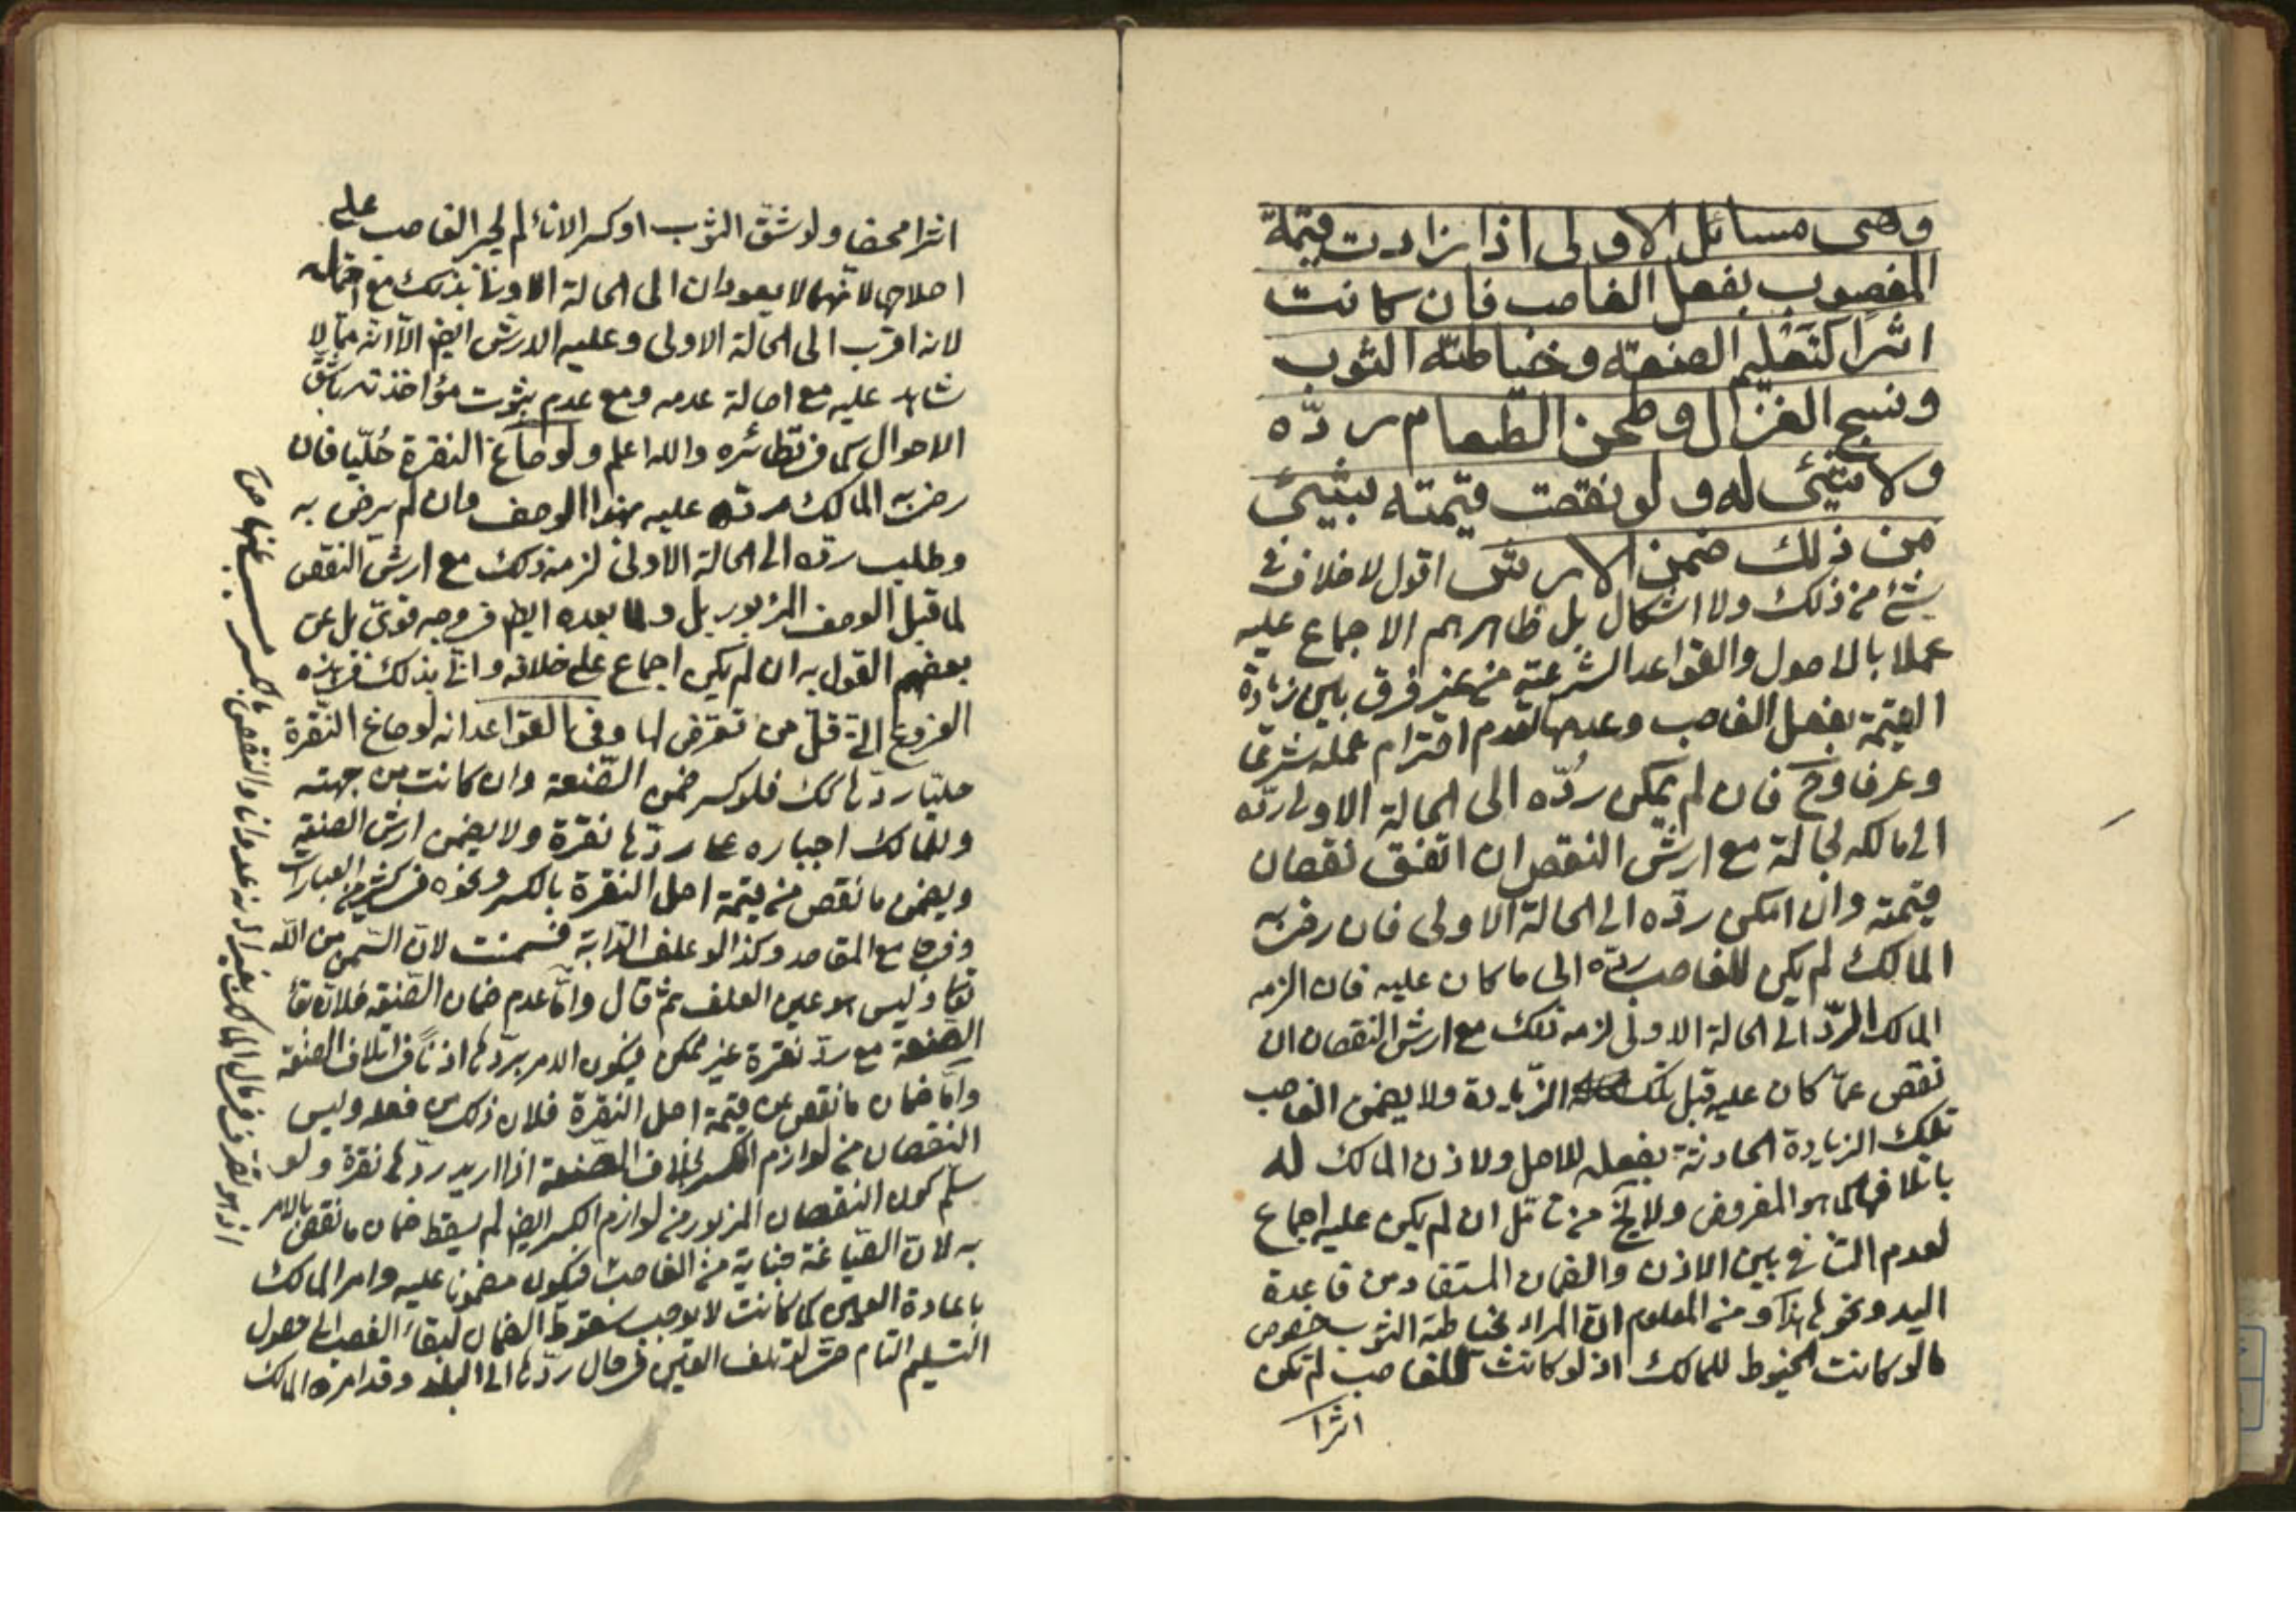 وهى مسائل الاولى اذا زادت قيمة
المغصوب بفعل الغاصب فان كانت
اثرا كتعليم الصنعة وخياطة الثوب
ونسج الغزل وطحن الطعام ردّه
ولا شيئ له ولو نقصت قيمته بشيئ
من ذلك ضمن الارش اقول لا خلاف فى
شئ من ذلك ولا اشكال بل ظاهرهم الاجماع عليه
عملا بالاصول والقواعد الشرعية من غير فرق بين زيادة
القيمة بفعل الغاصب وعدمها لعدم احترام عمله شرعا
وعرفا وح فان لم يمكن ردّه الى الحالة الاولى ردّه
الى مالكه بحالة مع ارش النقص ان اتفق نقصان
قيمته وان امكن ردّه الى الحالة الاولى فان رضى به
المالك لم يكن للغاصب ردّه الى ما كان عليه فان الزمه
المالك الردّ الى الحالة الاولى لزمه ذلك مع ارش النقصان ان
نقص عمّا كان عليه قبل تلك الزّيادة ولا يضمن الغاصب
تلك الزيادة الحادثة بفعله للاصل ولاذن المالك له
باتلافها كما هو المفروض ولا يخ من تامّل ان لم يكن عليه اجماع
لعدم التنافى بين الاذن والضمان المستفاد من قاعدة
اليد ونحوها هذا ومن المعلوم انّ المراد بخياطة الثوب خصوص
ما لو كانت الخيوط للمالك اذ لو كانت للغاصب لم تكن
اثرا
اثرا محضا ولو شقّ الثوب او كسر الاناء لم يجبر الغاصب على
اصلاحها لانّهما لا يعودان الى الحالة الاولى بذلك مع احتماله
لانه اقرب الى الحالة الاولى وعليه الارش ايض الّا انه ممّا لا
شاهد عليه مع اصالة عدمه ومع عدم ثبوت مؤاخذته باشقّ
الاحوال كما فى نظائره والله اعلم ولو صاغ النقرة حُليّا فان
رضى به المالك ردّه عليه بهذا الوصف وان لم يرض به
وطلب ردّه الى الحالة الاولى لزمه ذلك مع ارش النقص
لما قبل الوصف المزبور بل ولما بعده ايض فى وجه قوىّ بل عن
بعضهم القول به ان لم يكن اجماع على خلافه وانّا بذلك
الفروع الّتى قلّ من تعرّض لها وفى القواعد انه لو صاغ النّقرة
حليّا ردّها كك فلو كسر ضمن الصّنعة وان كانت من جهته
وللمالك اجباره على ردّها نقرة ولا يضمن ارش الصنعة
ويضمن ما نقص من قيمة اصل النقرة بالكسر ونحوه فى كثير من العبارات
وفى جامع المقاصد وكذا لو علف الدّابة فسمنت لانّ السّمن من الله
تعالى وليس هو عين العلف ثمّ قال وامّا عدم ضمان الصّنعة فلانّ بقاء
الصنعة مع ردّ نقرة غير ممكن فيكون الامر بردّها اذناً فى اتلاف الصنعة
وامّا ضمان ما نقص عن قيمة اصل النقرة فلان ذلك من فعله وليس
النقصان من لوازم الكسر بخلاف الصّنعة اذا اريد ردّها نقرة ولو
سلّم كون النقصان المزبور من لوازم الكسر ايض لم يسقط ضمان ما نقص بالامر
به لانّ الصّياغة جناية من الغاصب فيكون مضمونا عليه وامر المالك
باعادة العين كما كانت لا يوجب سقوط الضمان لبقاء الغصب الى حصول
التسليم التام حتّى لو تلف العين فى حال ردّها الى البلد وقد امره المالك
اذ هو تصرف فى مال المالك بغير اذنه عدوانا والنقص بالكسر